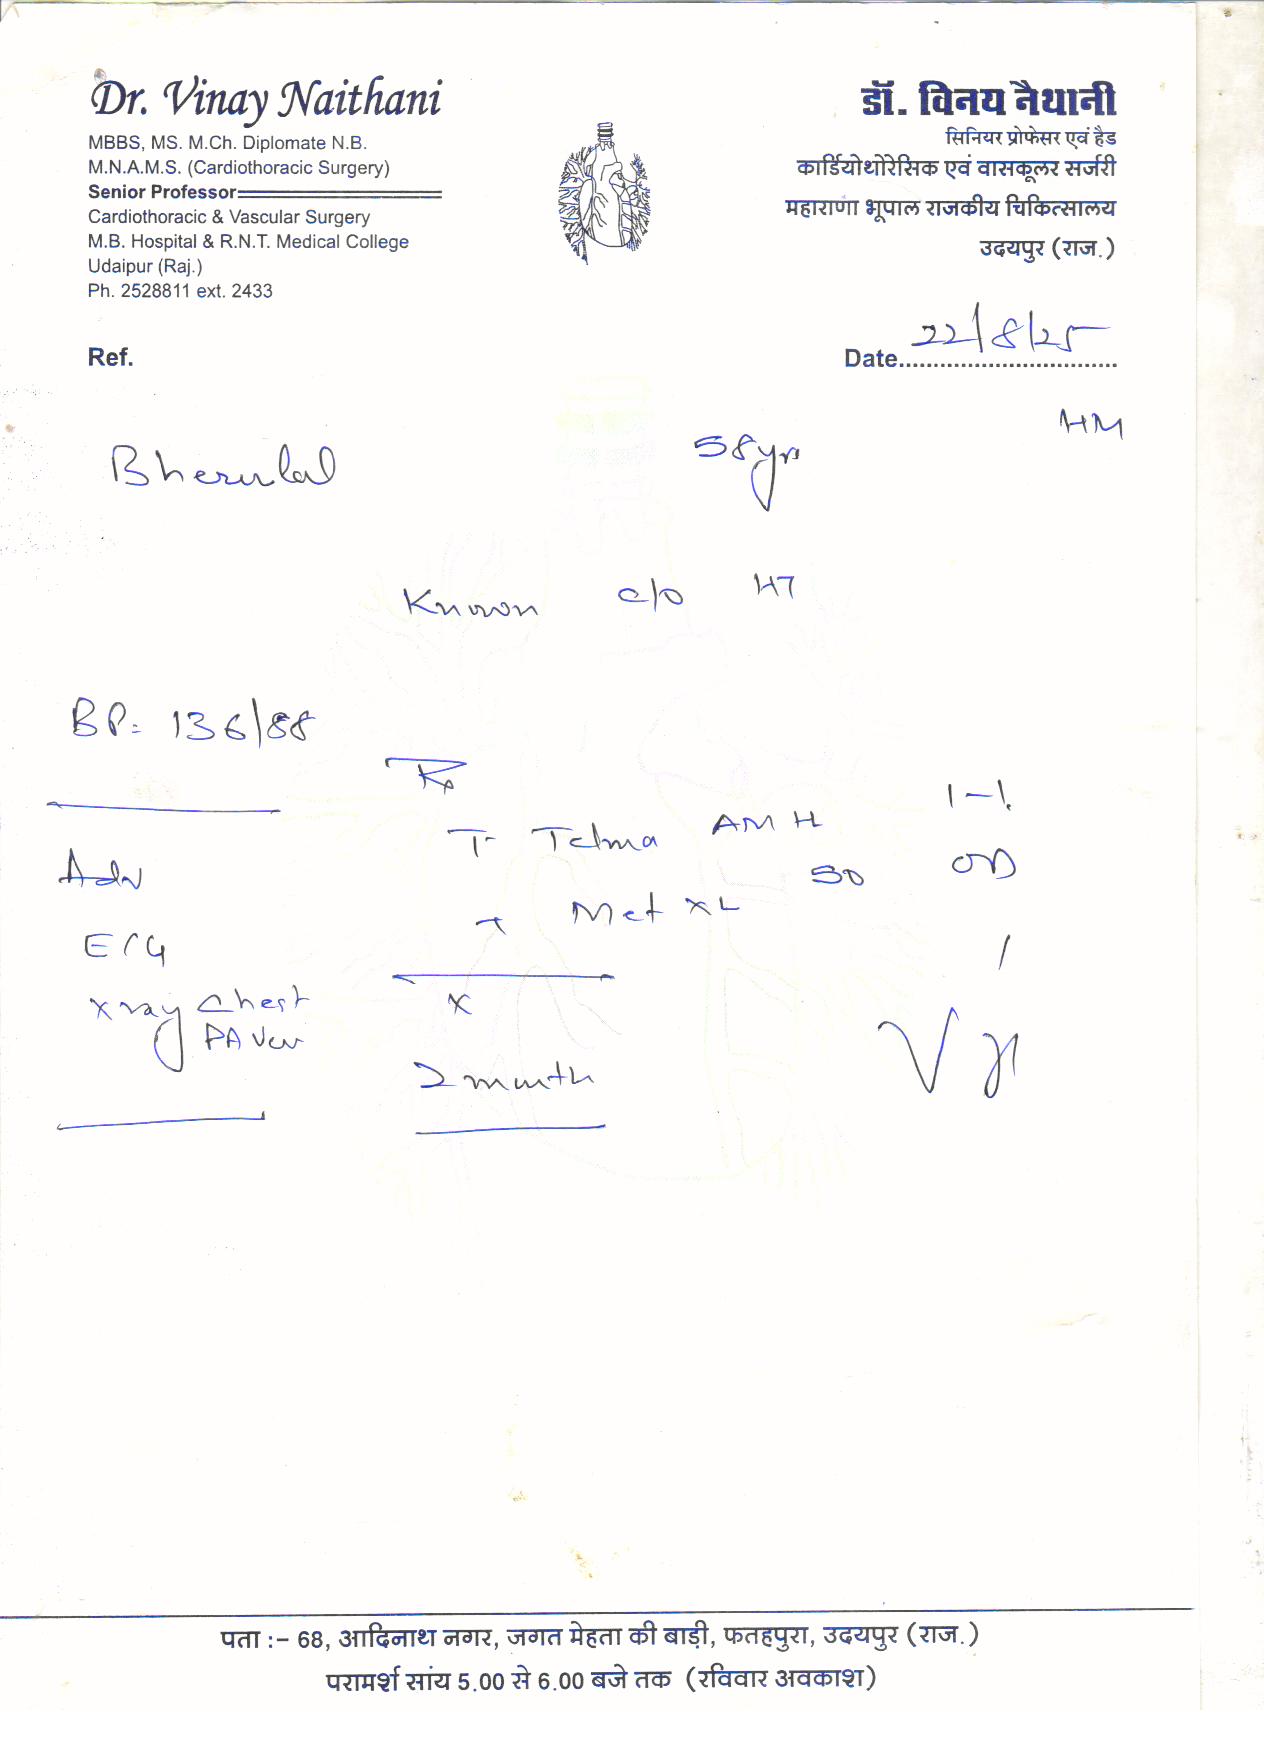 Dr. Vinay Naithani
MBBS, MS. M.Ch. Diplomate N.B.
M.N.A.M.S. (Cardiothoracic Surgery)
Senior Professor
Cardiothoracic & Vascular Surgery
M.B. Hospital & R.N.T. Medical College
Udaipur (Raj.)
Ph. 2528811 ext. 2433
डॉ. विनय नैथानी
सिनियर प्रोफेसर एवं हैड
कार्डियोथोरेसिक एवं वासकूलर सर्जरी
महाराणा भूपाल राजकीय चिकित्सालय
उदयपुर (राज.)
Ref.
Date 22/8/25
HM
Bherulal 58yrs
Known c/o HT
BP: 136/88
Rx
T Telma AMH 1-1
T Met XL 50 OD
Adv
ECG
X ray Chest
PA View
x
2 month
पता :- 68, आदिनाथ नगर, जगत मेहता की बाड़ी, फतहपुरा, उदयपुर (राज.)
परामर्श सांय 5.00 से 6.00 बजे तक (रविवार अवकाश)